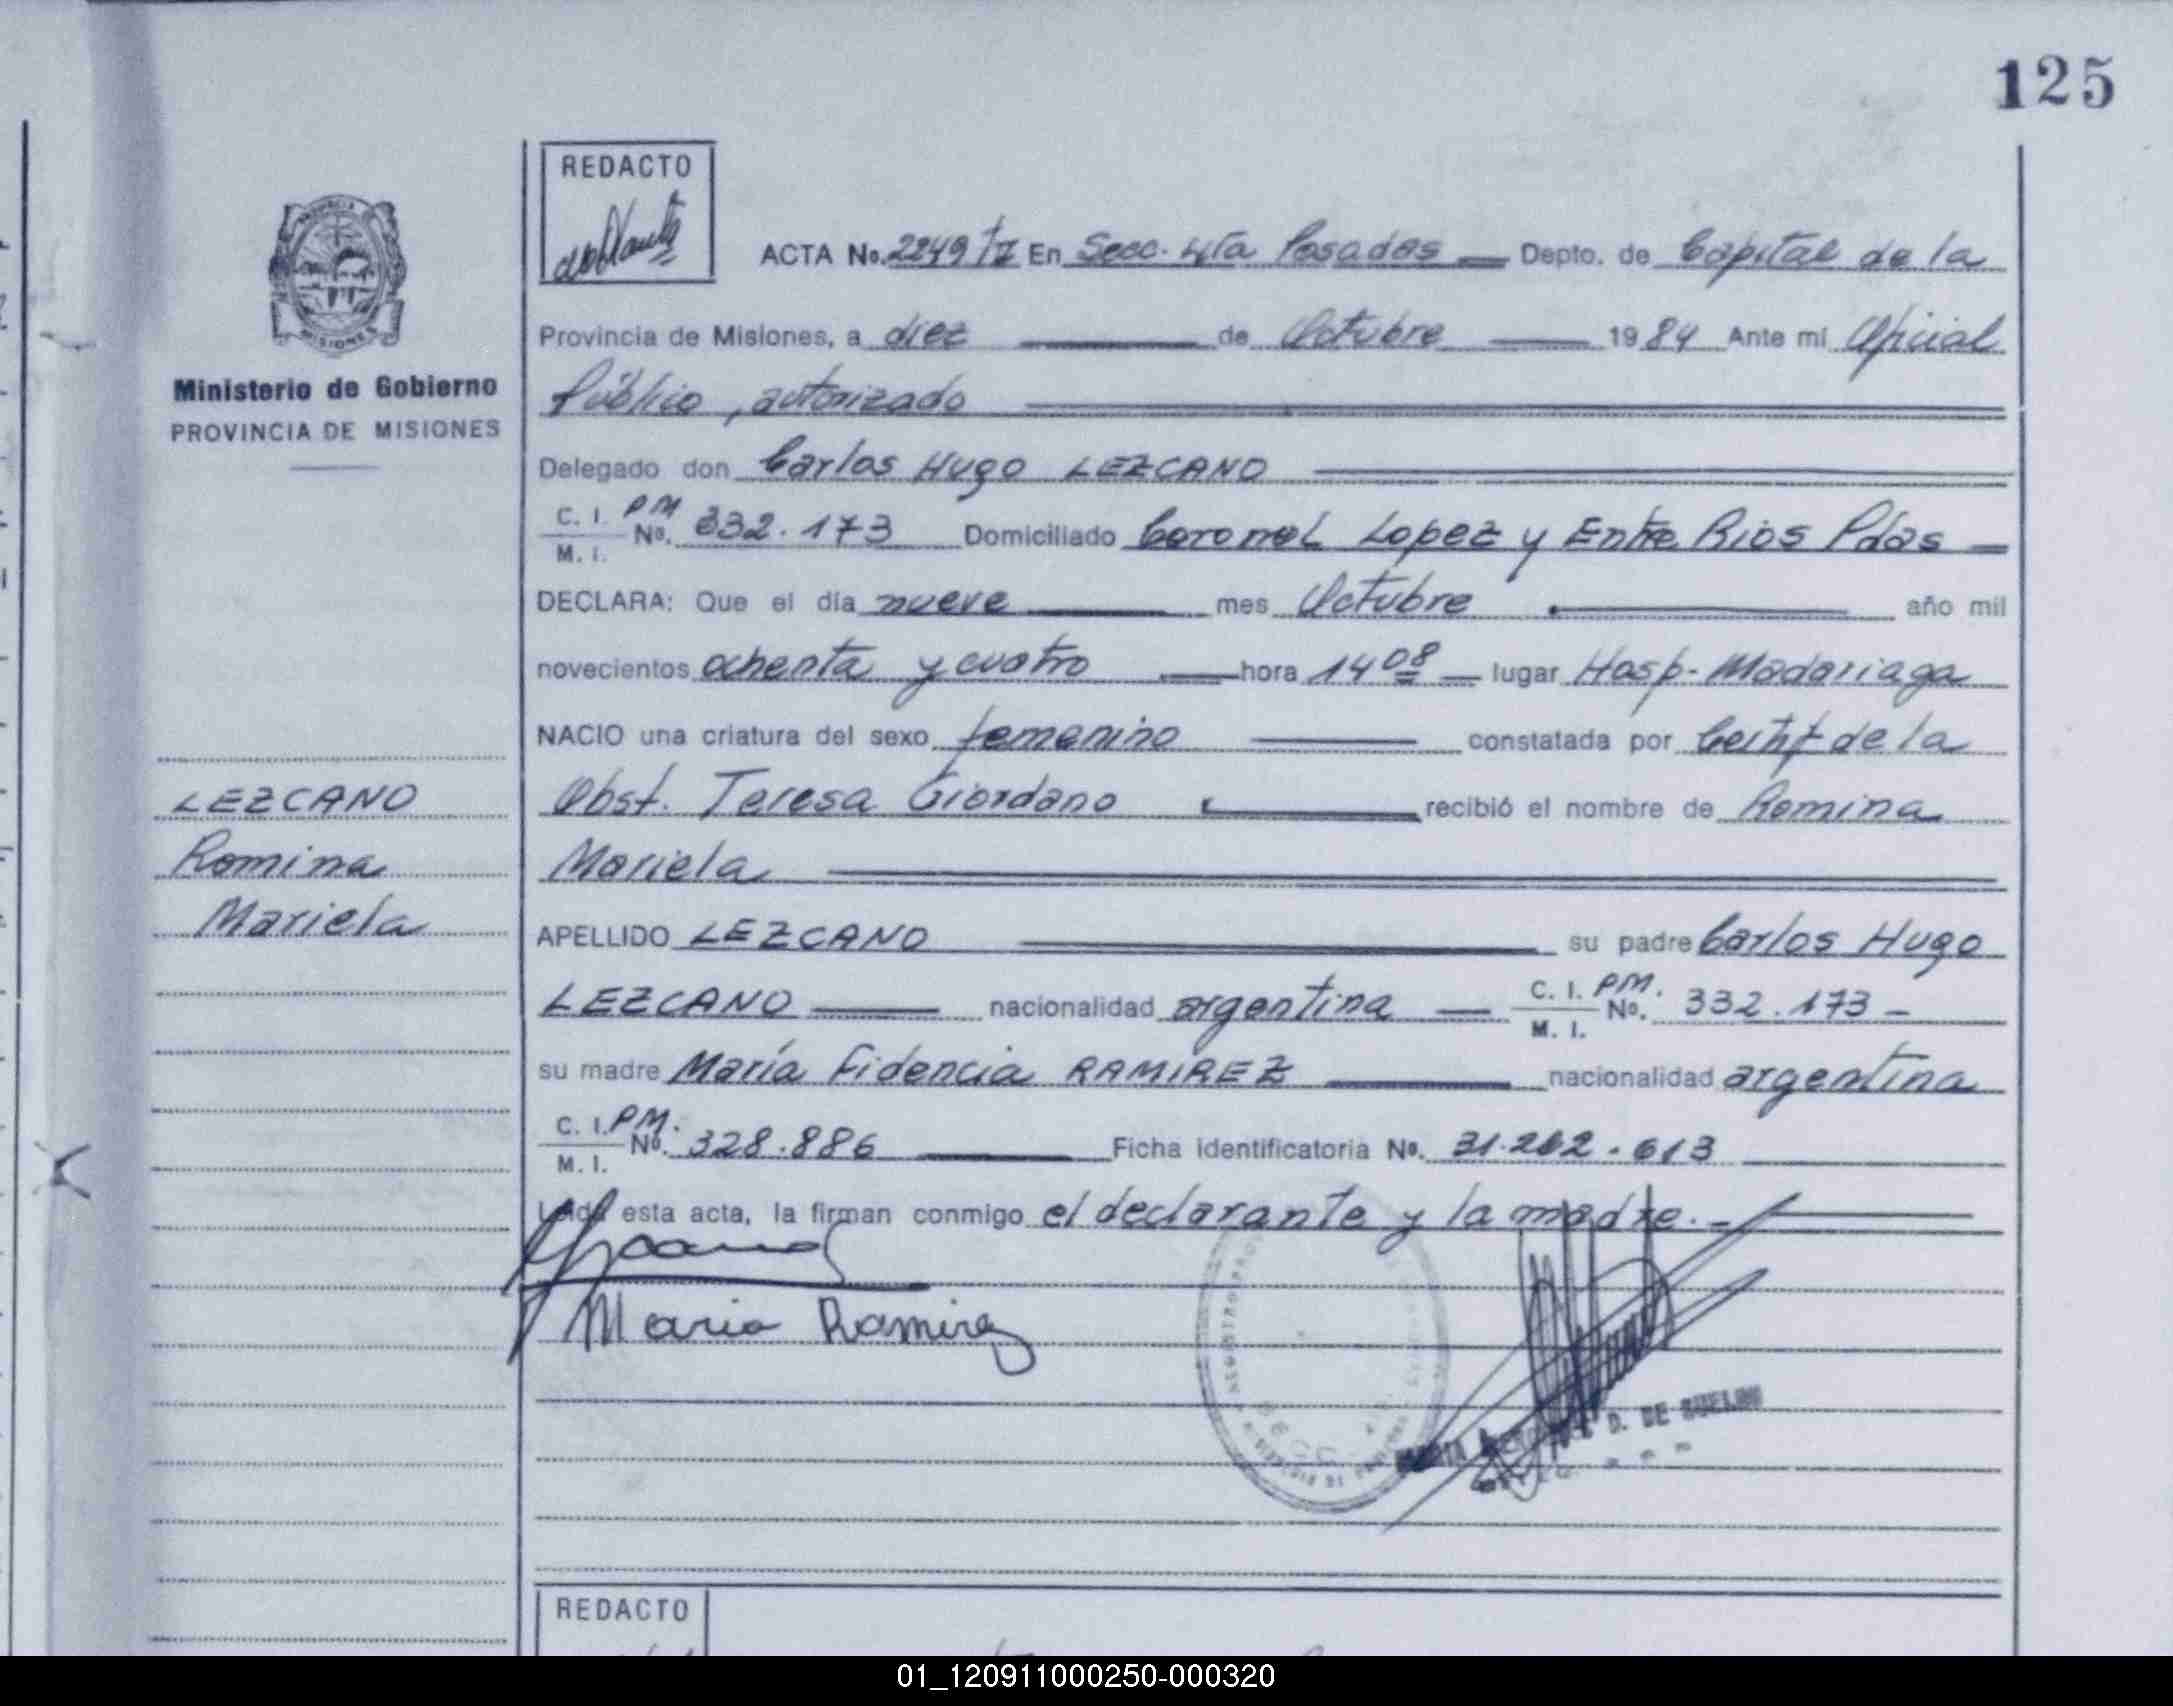 125
REDACTO
ACTA No. 2249/I En Secc. 4ta Posadas Depto. de Capital de la
Provincia de Misiones, a diez de Octubre 1984 Ante mi Oficial
Público, autorizado
Delegado don Carlos Hugo LEZCANO
C. I. PM
M. I. No. 332.173 Domiciliado Coronel Lopez y Entre Rios Pdas
DECLARA: Que el día nueve mes Octubre año mil
novecientos ochenta y cuatro hora 14 08 lugar Hosp. Madariaga
NACIO una criatura del sexo femenino constatada por Certf de la
Obst. Teresa Giordano recibió el nombre de Romina
Mariela
APELLIDO LEZCANO su padre Carlos Hugo
LEZCANO nacionalidad argentina C. I. PM. M. I. No. 332.173 -
su madre María Fidencia RAMIREZ nacionalidad argentina
C. I. PM. M. I. No. 328.886 Ficha identificatoria No. 31.262.613
Leida esta acta, la firman conmigo el declarante y la madre. -
Maria Ramirez
D. DE
PROVINCIA
MISIONES
Ministerio de Gobierno
PROVINCIA DE MISIONES
LEZCANO
Romina
Mariela
REDACTO
01_120911000250-000320